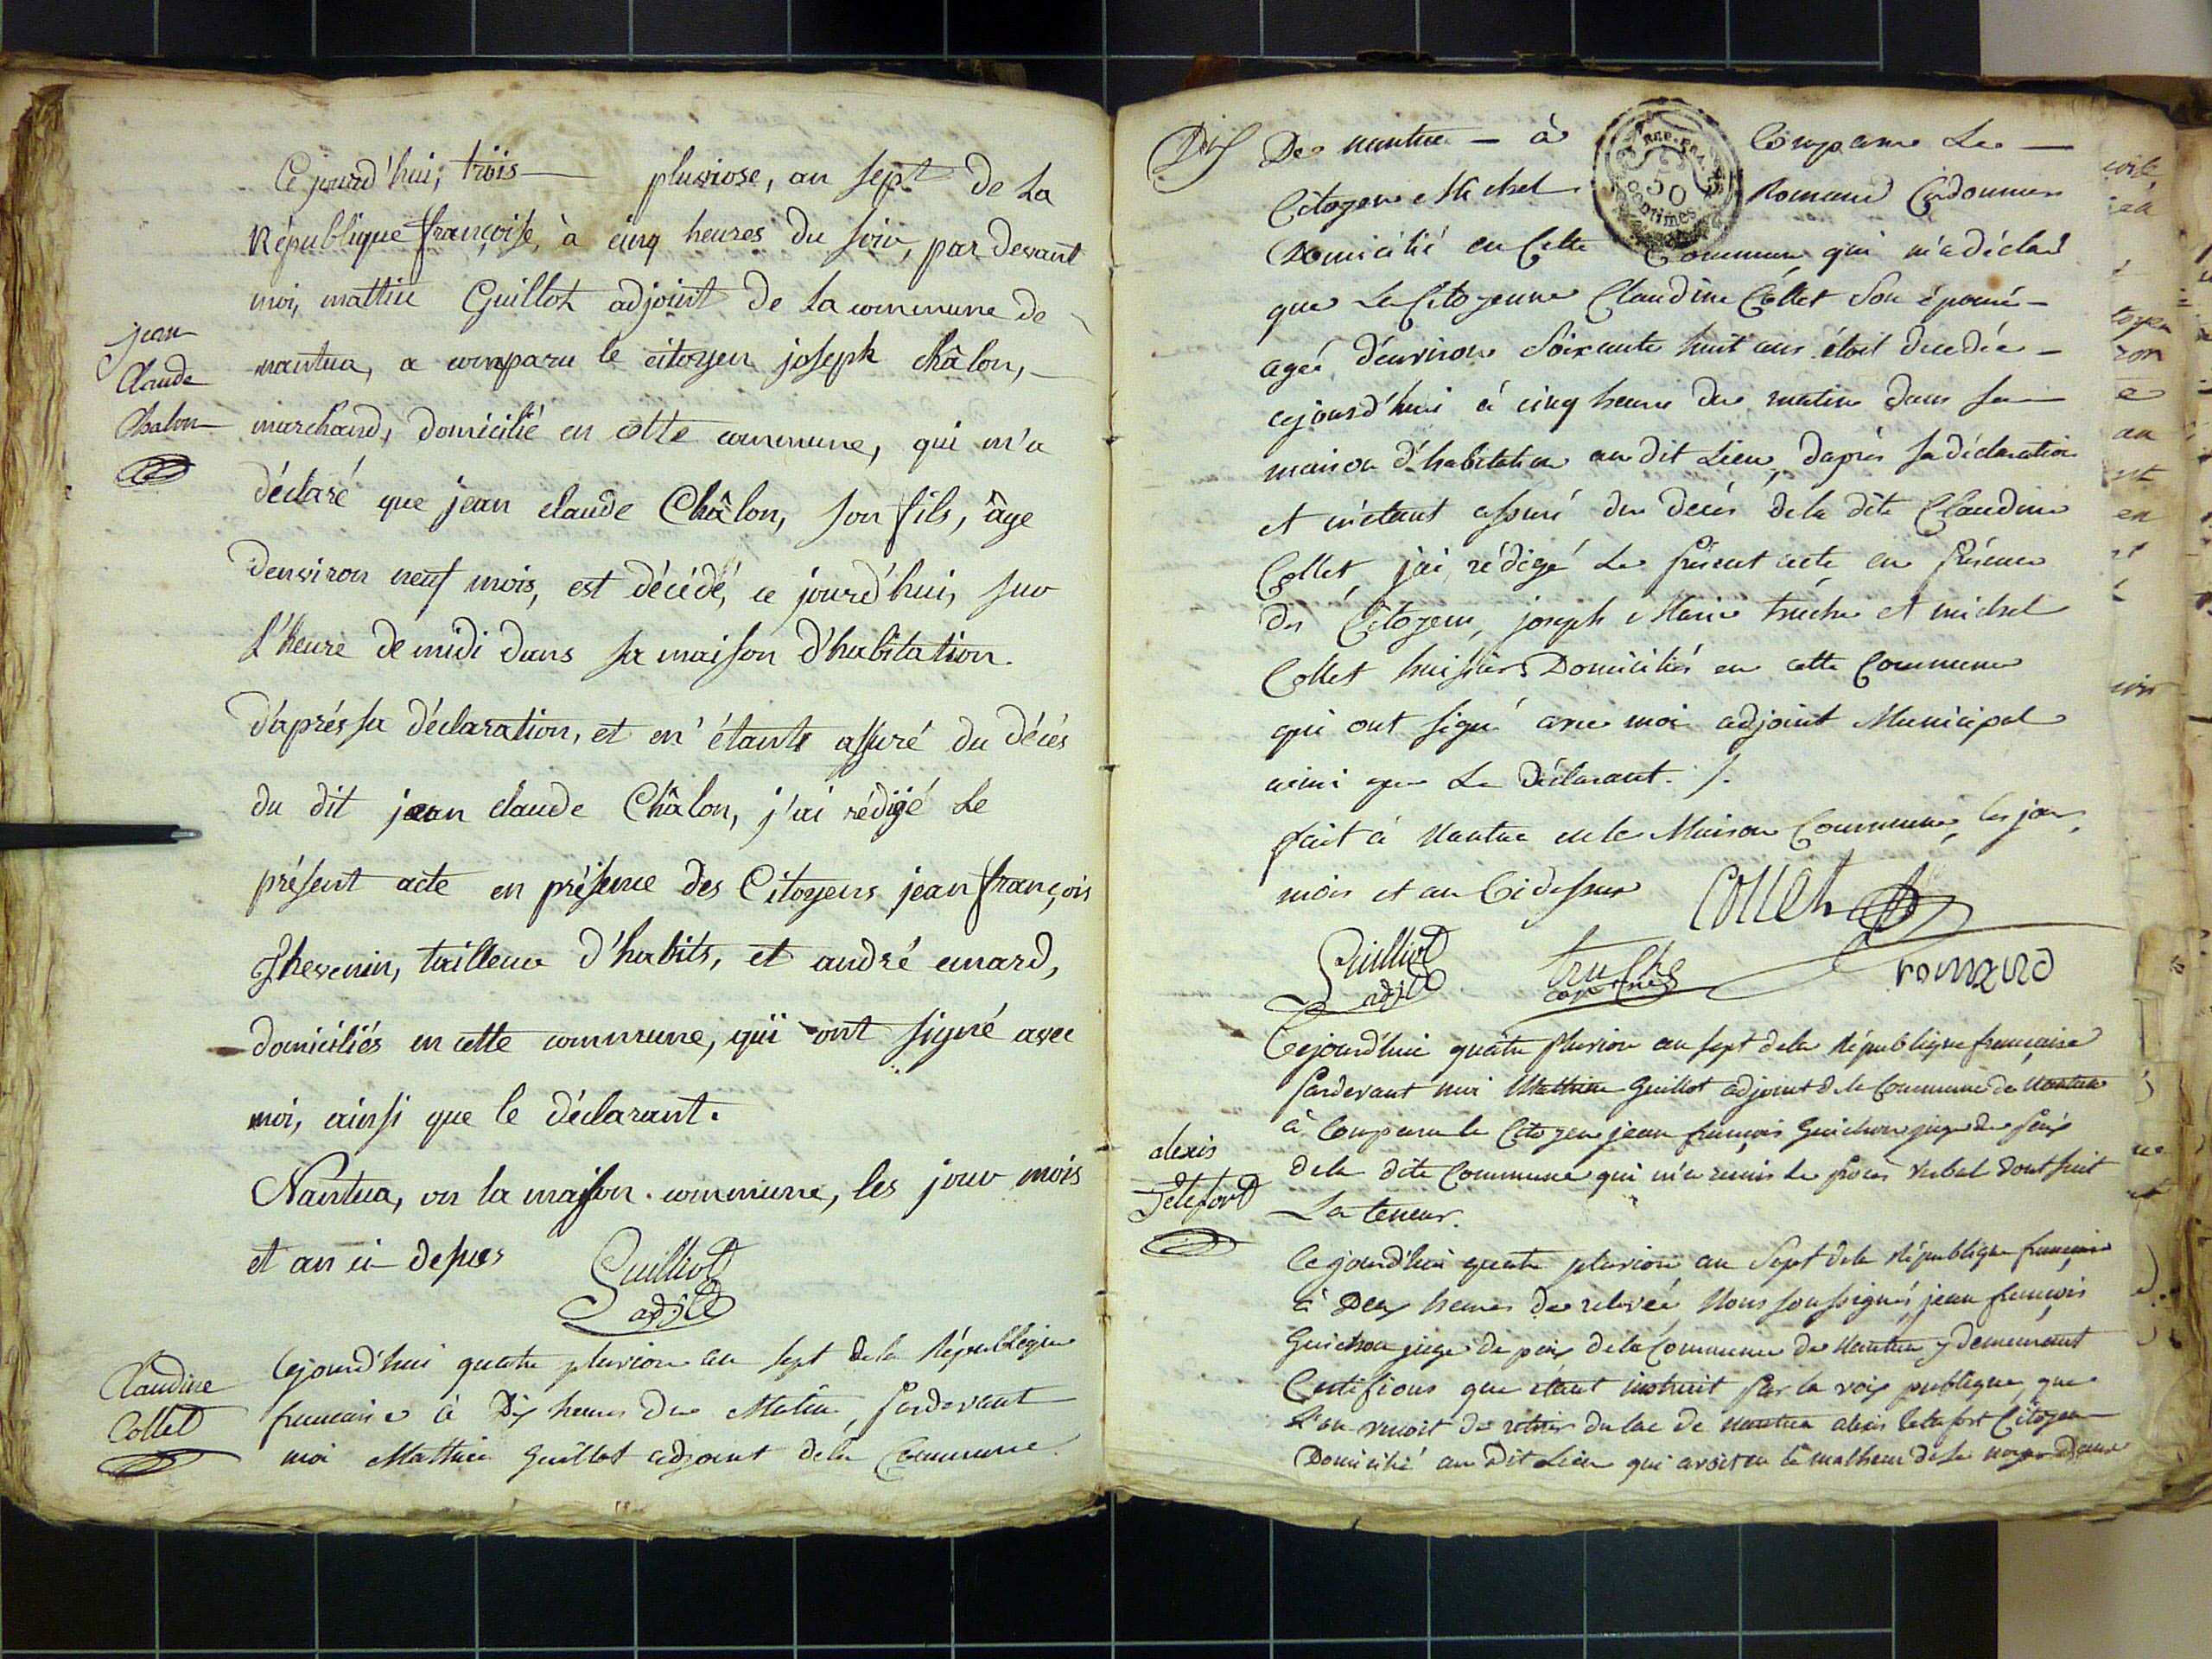 Ce jourd'hui, trois — pluviose, an sept de La
République françoise, à cinq heures du soir, par devant
moi, mattieu Guillot adjoint de La commune de
jean
Claude
Chalon
nantua, a comparu le citoyen joseph châlon, —
marchand, domicilié en cette commune, qui m'a
déclaré que jean claude Châlon, son fils, âge
denviron neuf mois, est décédé, ce jourd'hui, sur
L'heure de midi dans sa maison d'habitation.
d'aprés sa déclaration, et m'étant assuré du décés
du dit jean claude Châlon, j'ai rédigé Le
présent acte en présence des Citoyens jean françois
Thevenin, tailleur d'habits, et andré emard,
domiciliés en cette commune, qui ont signé avec
moi, ainsi que le déclarant.
Nantua, en la maison commune, les jour mois
et an ci dessus
Guilliot
adjt
Claudine
Collet
Cejourd'hui quatre pluviose an sept dela République
francaise à Dix heures du Matin, pardevant
moi Mathieu Guillot adjoint dela Commune
De nantua — à Comparu Le —
REP. FRA.
50
centimes
Citoyen Michel Romand Cordonnier
Domicilié en Cette Commune qui m'a déclaré
que La Citoyenne Claudine Collet Son épouse —
agée d'environ Soixante huit ans étoit decedée —
cejourd'hui à cinq heures du matin dans sa —
maison d'habitation au dit Lieu, daprès sa déclaration
et m'etant assuré du décés dela dite Claudine
Collet, j'ai rédigé Le present acte en présence
des Citoyens, joseph Marie truche et michel
Collet huissiers Domiciliés en cette Commune
qui ont signé avec moi adjoint Municipal
ainsi que Le Déclarant. /.
fait à Nantua en la Maison Commune, les jour,
mois et an Cidessus
Collet
Guilliot
adjt
truche
romand
Cejourd'hui quatre pluviose an sept dela République francaise
pardevant moi Mathieu Guillot adjoint dela Commune de Nantua
à Comparu le Citoyen jean françois Guichon juge de paix
alexis
Jetefort
dela dite Commune qui m'a remis le procès verbal dont suit
La teneur.
Ce jourd'hui quatre pluviose an Sept dela République française
à Deux heures de relevée, Nous soussignés jean françois
Guichon juge de paix dela Commune de Nantua y demeurant
Certifions que etant instruit par la voix publique, que
L'on venoit de retirer du lac de nantua alexis Jetefort Citoyen
Domicilié au Dit Lieu qui avoit eu le malheur de se noyer dans